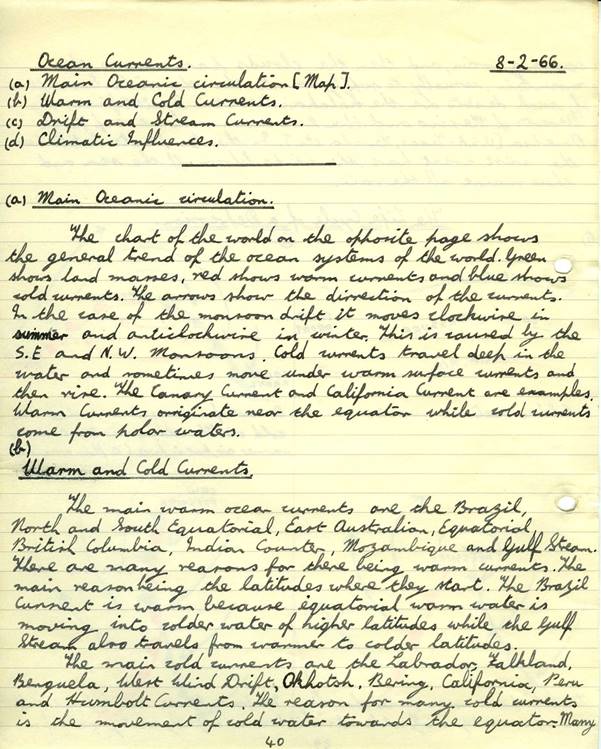 Ocean Currents. 8-2-66.
(a) Main Oceanic circulation [Map].
(b) Warm and Cold Currents.
(c) Drift and Stream Currents.
(d) Climatic Influences.
(a) Main Oceanic circulation.
The chart of the world on the opposite page shows
the general trend of the ocean systems of the world. Green
shows land masses, red shows warm currents and blue shows
cold currents. The arrows show the dirrection of the currents.
In the case of the monsoon drift it moves clockwire in
summer and anticlockwire in winter. This is caused by the
S.E and N.W. Monsoons. Cold currents travel deep in the
water and sometimes move under warm surface currents and
then rise. The Canary Current and California Current are examples.
Warm Currents orriginate near the equator while cold currents
come from polar waters.
(b)
Warm and Cold Currents.
The main warm ocean currents are the Brazil,
North and South Equatorial, East Australian, Equatorial,
British Columbia, Indian Counter, Mozambique and Gulf Stream.
There are many reasons for there being warm currents. The
main reason being the latitudes where they start. The Brazil
Current is warm because equatorial warm water is
moving into colder water of higher latitudes while the Gulf
Stream also travels from warmer to colder latitudes.
The main cold currents are the Labrador, Falkland,
Benguela, West Wind Drift, Okhotsh, Bering, California, Peru
and Humbolt Currents. The reason for many cold currents
is the movement of cold water towards the equator. Many
40